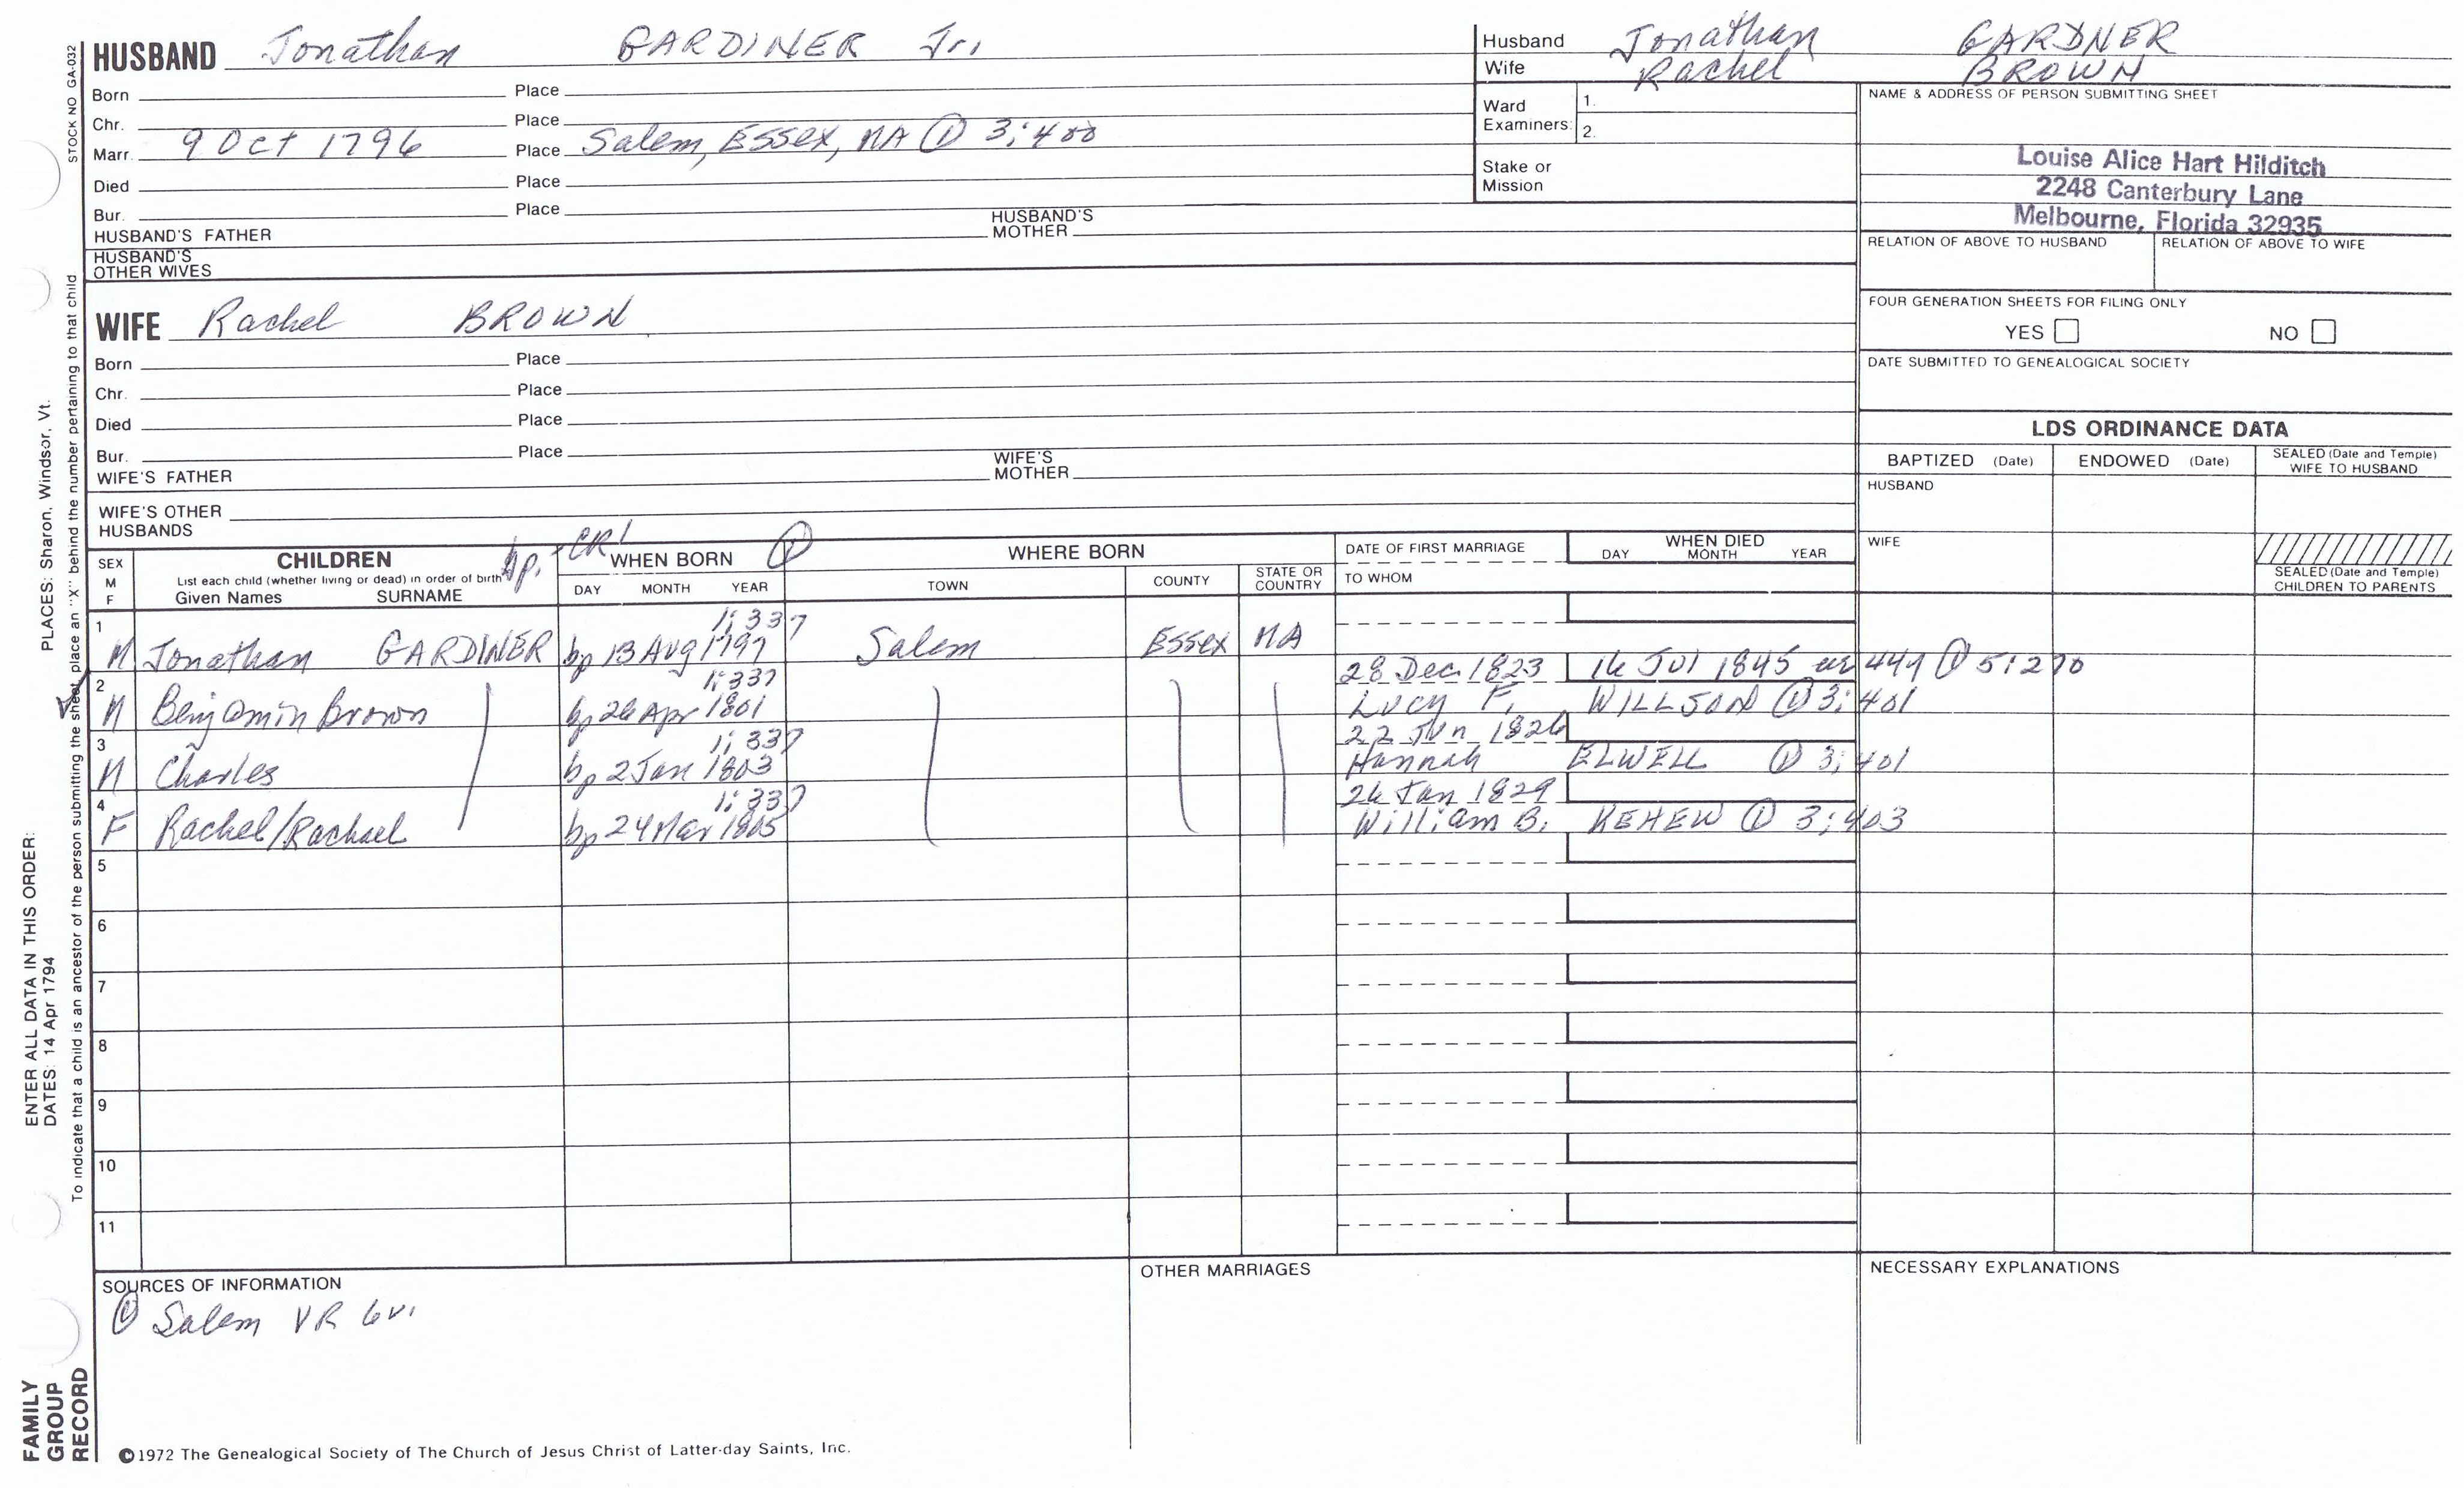 HUSBAND Jonathan GARDINER Jr.
Born Place
Chr. Place
Marr. 9 Oct 1796 Place Salem, Essex, MA ① 3:400
Died Place
Bur. Place
HUSBAND'S FATHER HUSBAND'S MOTHER
HUSBAND'S OTHER WIVES
Husband Jonathan GARDNER
Wife Rachel BROWN
Ward Examiners: 1.
2.
Stake or Mission
NAME & ADDRESS OF PERSON SUBMITTING SHEET
Louise Alice Hart Hilditch
2248 Canterbury Lane
Melbourne, Florida 32935
RELATION OF ABOVE TO HUSBAND RELATION OF ABOVE TO WIFE
FOUR GENERATION SHEETS FOR FILING ONLY
YES NO
DATE SUBMITTED TO GENEALOGICAL SOCIETY
WIFE Rachel BROWN
Born Place
Chr. Place
Died Place
Bur. Place
WIFE'S FATHER WIFE'S MOTHER
WIFE'S OTHER HUSBANDS
LDS ORDINANCE DATA
BAPTIZED (Date) ENDOWED (Date) SEALED (Date and Temple) WIFE TO HUSBAND
HUSBAND
WIFE
SEALED (Date and Temple) CHILDREN TO PARENTS
bp. - CR1 ①
SEX M F
CHILDREN
List each child (whether living or dead) in order of birth
Given Names SURNAME
WHEN BORN
DAY MONTH YEAR
WHERE BORN
TOWN COUNTY STATE OR COUNTRY
DATE OF FIRST MARRIAGE
TO WHOM
WHEN DIED
DAY MONTH YEAR
1 1:337
M Jonathan GARDINER bp 13 Aug 1797 Salem Essex MA
2 1:337 28 Dec. 1823 16 Jul 1845 ae 44y ① 5:270
M Benjamin Brown bp 26 Apr 1801 Lucy F. WILLSON ① 3:401
3 1:337 22 Jun 1826
M Charles bp 2 Jan 1803 Hannah ELWELL ① 3:401
4 1:337 26 Jan 1829
F Rachel/Rachael bp 24 Mar 1805 William B. KEHEW ① 3:403
5
6
7
8
9
10
11
SOURCES OF INFORMATION
① Salem VR 6v.
OTHER MARRIAGES
NECESSARY EXPLANATIONS
©1972 The Genealogical Society of The Church of Jesus Christ of Latter-day Saints, Inc.
STOCK NO GA-032
To indicate that a child is an ancestor of the person submitting the sheet, place an "X" behind the number pertaining to that child
PLACES: Sharon, Windsor, Vt.
ENTER ALL DATA IN THIS ORDER:
DATES: 14 Apr 1794
FAMILY
GROUP
RECORD